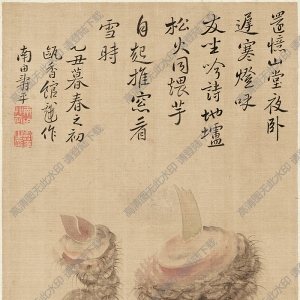 還憶山堂夜卧
遲寒燈呼
友坐吟詩地壚
松火同煨芋
自起推窓看
雪時
乙丑暮春之初
甌香館造作
南田壽平